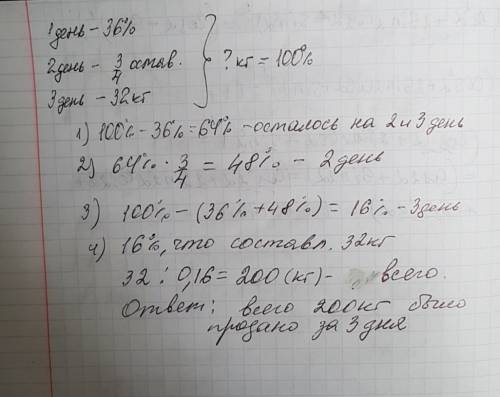 1 день – 36%
2 день – 3/4 остав. } ? кг = 100%
3 день – 32 кг
1) 100% - 36% = 64% - осталось на 2 и 3 день
2) 64% · 3/4 = 48% – 2 день
3) 100% – (36% + 48%) = 16% - 3 день
4) 16%, что составл. 32 кг
32 : 0,16 = 200 (кг) - всего.
Ответ: всего 200 кг было
продано за 3 дня